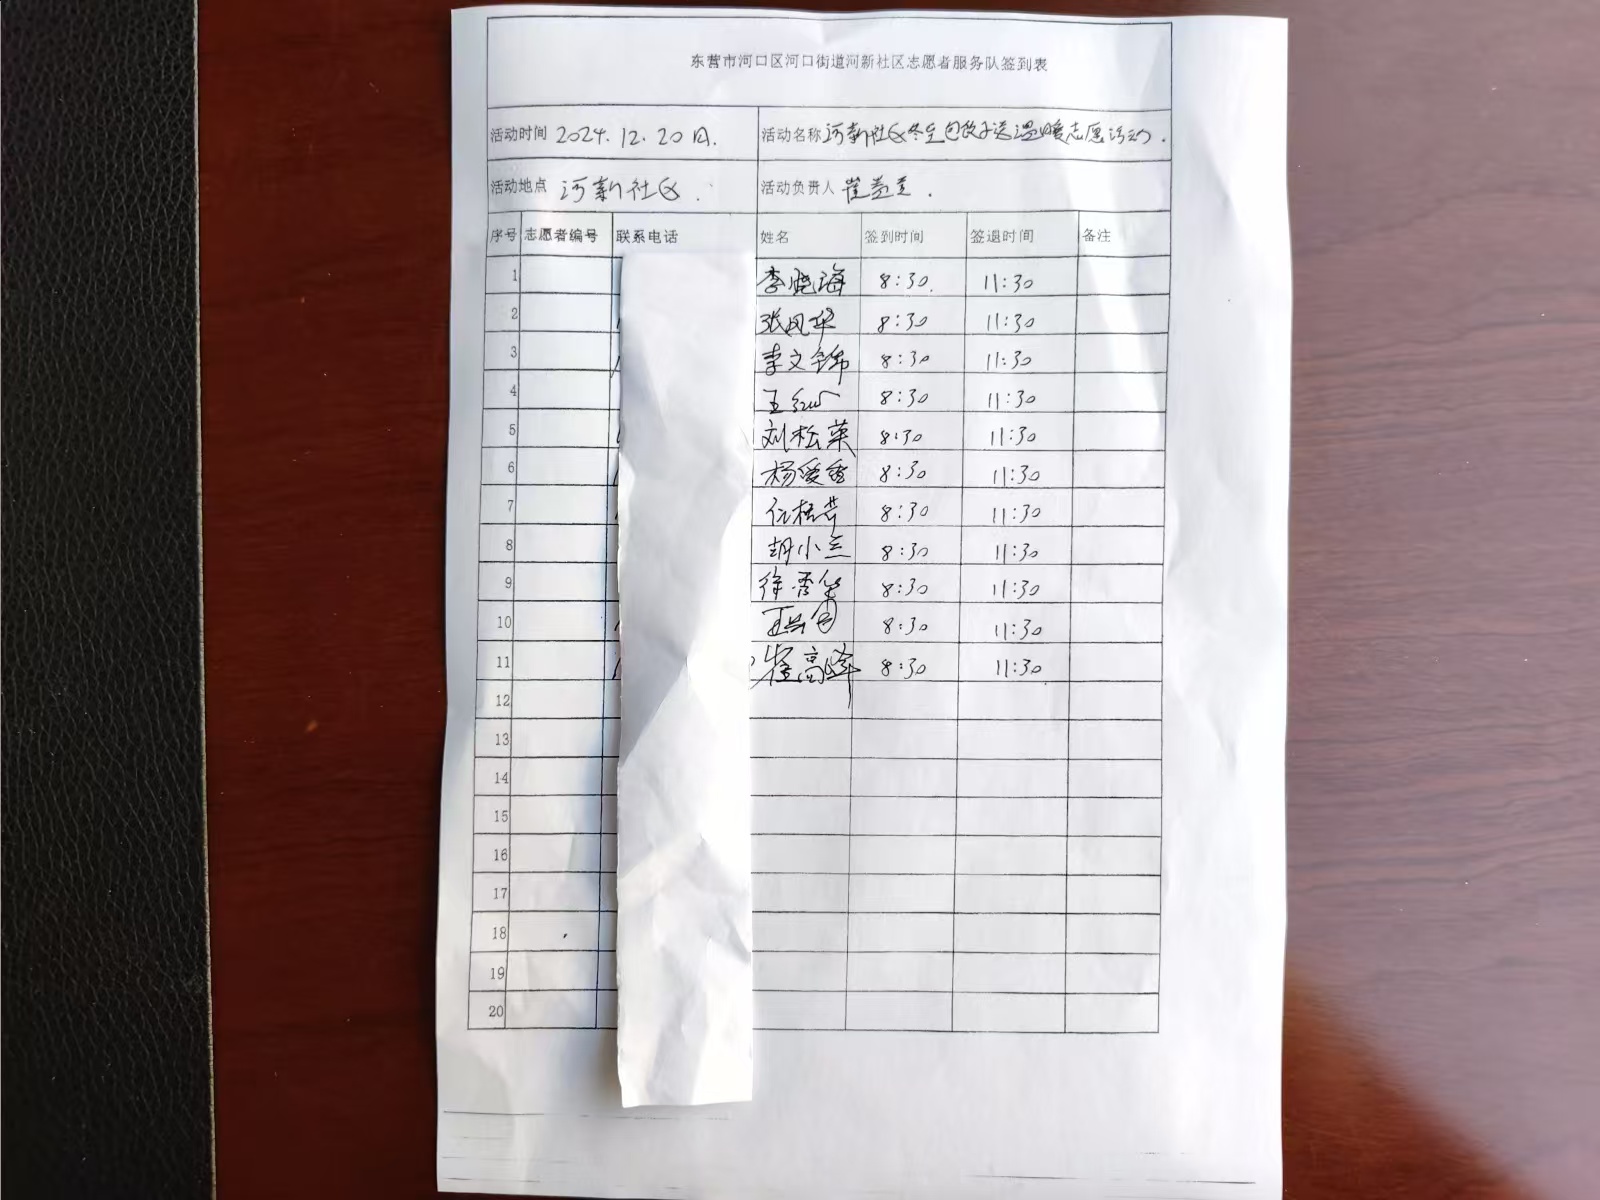 东营市河口区河口街道河新社区志愿者服务队签到表
活动时间 2024.12.20日. 活动名称 河新社区冬至包饺子送温暖志愿活动.
活动地点 河新社区. 活动负责人 崔
序号 志愿者编号 联系电话 姓名 签到时间 签退时间 备注
1 李晓海 8:30. 11:30
2 张凤华 8:30 11:30
3 李文锦 8:30 11:30
4 王红 8:30 11:30
5 刘松菜 8:30 11:30
6 杨爱香 8:30 11:30
7 任桂芹 8:30 11:30
8 胡小兰 8:30 11:30
9 徐秀华 8:30 11:30
10 8:30 11:30
11 崔高峰 8:30 11:30
12
13
14
15
16
17
18
19
20